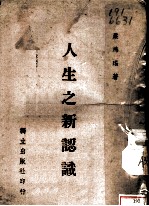 191
6631
著
人生之新認識
獨立出版社印行